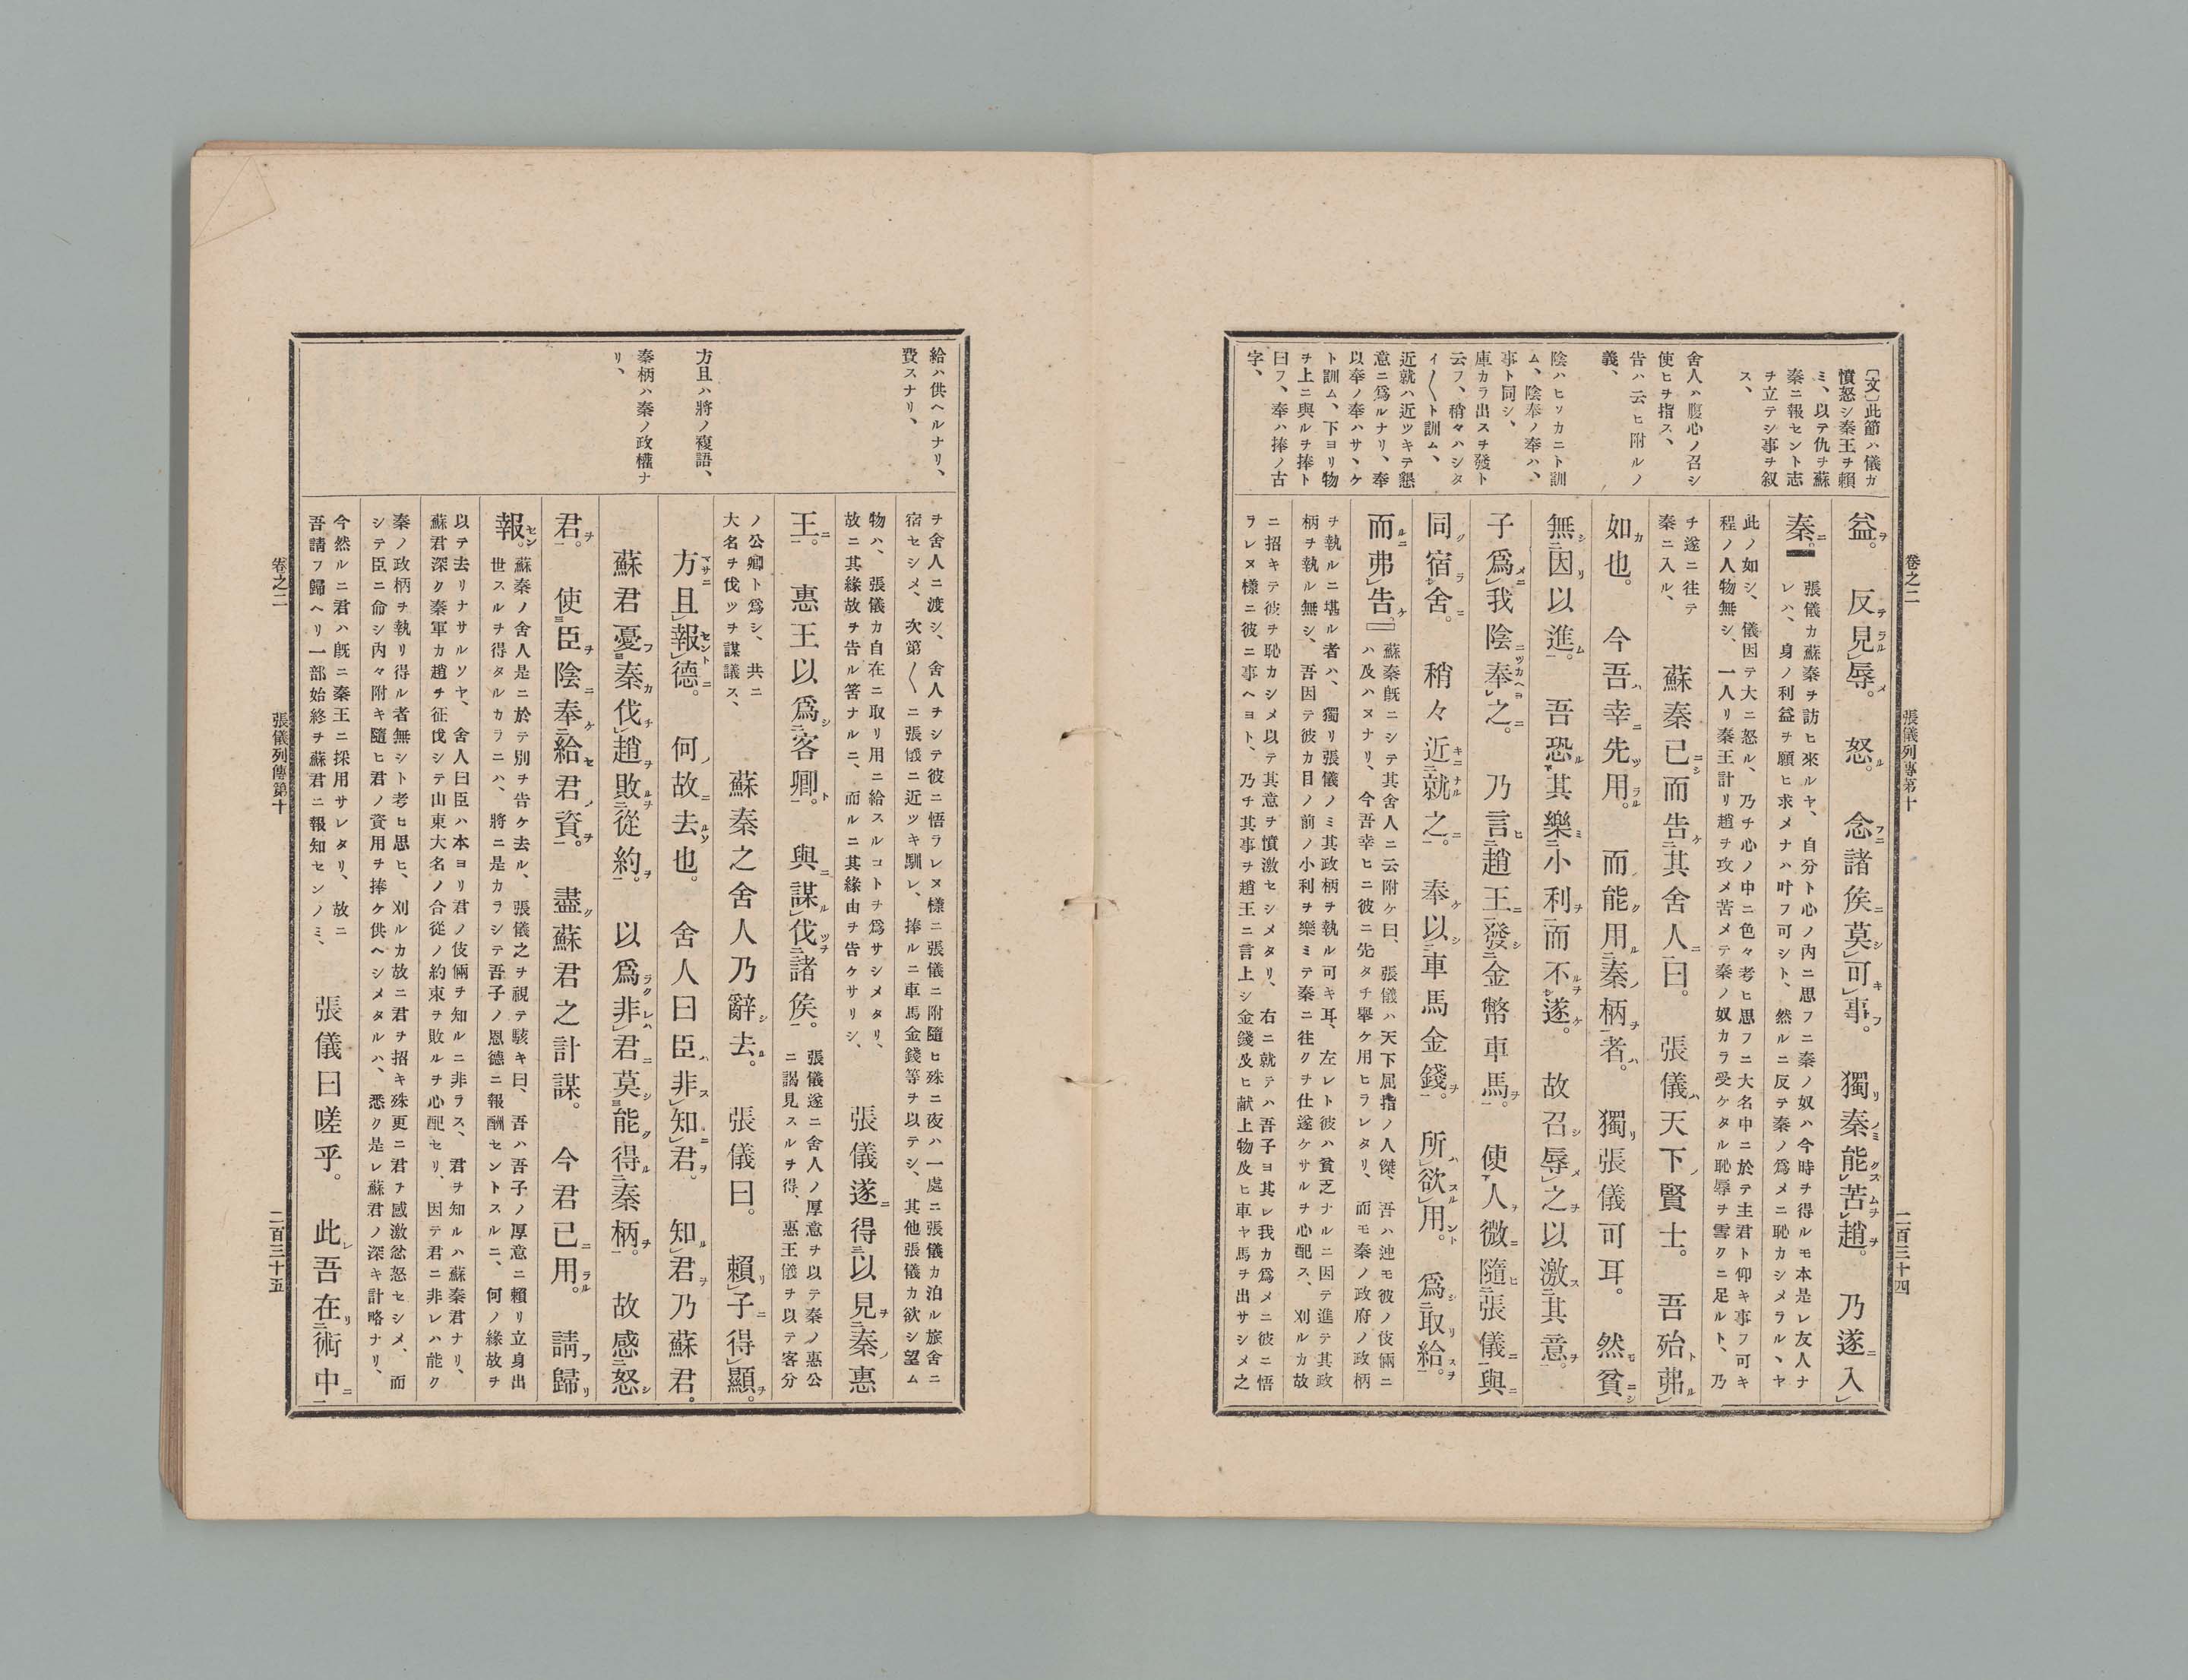 卷之二
張儀列傳第十
二百三十四
〔文〕此節ハ儀カ
憤怒シ秦王ヲ賴
ミ、以テ仇ヲ蘇
秦ニ報セント志
ヲ立テシ事ヲ叙
ス、
舍人ハ腹心ノ召シ
使ヒヲ指ス、
告ハ云ヒ附ルノ
義、
陰ハヒソカニト訓
ム、陰奉ノ奉ハ、
事ト同シ、
庫カラ出スヲ發ト
云フ、稍々ハシタ
イ〱ト訓ム、
近就ハ近ツキテ懇
意ニ爲ルナリ、奉
以奉ノ奉ハサヽケ
ト訓ム、下ヨリ物
ヲ上ニ與ルヲ捧ト
曰フ、奉ハ捧ノ古
字、
益。反見辱。怒。念諸矦莫可事。獨秦能苦趙。乃遂入
秦。張儀カ蘇秦ヲ訪ヒ來ルヤ、自分ト心ノ内ニ思フニ秦ノ奴ハ今時ヲ得ルモ本是レ友人ナ
レハ、身ノ利益ヲ願ヒ求メナハ叶フ可シト、然ルニ反テ秦ノ爲メニ恥カシメラルヽヤ
此ノ如シ、儀因テ大ニ怒ル、乃チ心ノ中ニ色々考ヒ思フニ大名中ニ於テ主君ト仰キ事フ可キ
程ノ人物無シ、一人リ秦王計リ趙ヲ攻メ苦メテ秦ノ奴カラ受ケタル恥辱ヲ雪クニ足ルト、乃
チ遂ニ往テ
秦ニ入ル、
蘇秦已而告其舍人曰。張儀天下賢士。吾殆弗
如也。今吾幸先用。而能用秦柄者。獨張儀可耳。然貧
無因以進。吾恐其樂小利而不遂。故召辱之以激其意。
子爲我陰奉之。乃言趙王發金幣車馬。使人微隨張儀與
同宿舍。稍々近就之。奉以車馬金錢。所欲用。爲取給。
而弗告。蘇秦旣ニシテ其舍人ニ云附ケ曰、張儀ハ天下屈指ノ人傑、吾ハ迚モ彼ノ伎倆ニ
ハ及ハヌナリ、今吾幸ヒニ彼ニ先タチ擧ケ用ヒラレタリ、而モ秦ノ政府ノ政柄
ヲ執ルニ堪ル者ハ、獨リ張儀ノミ其政柄ヲ執ル可キ耳、左レト彼ハ貧乏ナルニ因テ進テ其政
柄ヲ執ル無シ、吾因テ彼カ目ノ前ノ小利ヲ樂ミテ秦ニ往クヲ仕遂ケサルヲ心配ス、刈ルカ故
ニ招キテ彼ヲ恥カシメ以テ其意ヲ憤激セシメタリ、右ニ就テハ吾子ヨ其レ我カ爲メニ彼ニ悟
ラレヌ様ニ彼ニ事ヘヨト、乃チ其事ヲ趙王ニ言上シ金錢及ヒ献上物及ヒ車ヤ馬ヲ出サシメ之
給ハ供ヘルナリ、
費スナリ、
方且ハ將ノ複語、
秦柄ハ秦ノ政權ナ
リ、
ヲ舍人ニ渡シ、舍人ヲシテ彼ニ悟ラレヌ様ニ張儀ニ附隨ヒ殊ニ夜ハ一處ニ張儀カ泊ル旅舍ニ
宿セシメ、次第〱ニ張儀ニ近ツキ馴レ、捧ルニ車馬金錢等ヲ以テシ、其他張儀カ欲シ望ム
物ハ、張儀カ自在ニ取リ用ニ給スルコトヲ爲サシメタリ、
故ニ其緣故ヲ告ル筈ナルニ、而ルニ其緣由ヲ告ケサリシ、
張儀遂得以見秦惠
王。惠王以爲客卿。與謀伐諸矦。張儀遂ニ舍人ノ厚意ヲ以テ秦ノ惠公
ニ謁見スルヲ得、惠王儀ヲ以テ客分
ノ公卿ト爲シ、共ニ
大名ヲ伐ツヲ謀議ス、
蘇秦之舍人乃辭去。張儀曰。賴子得顯。
方且報德。何故去也。舍人曰臣非知君。知君乃蘇君。
蘇君憂秦伐趙敗從約。以爲非君莫能得秦柄。故感怒
君。使臣陰奉給君資。盡蘇君之計謀。今君已用。請歸
報。蘇秦ノ舍人是ニ於テ別ヲ告ケ去ル、張儀之ヲ視テ駭キ曰、吾ハ吾子ノ厚意ニ賴リ立身出
世スルヲ得タルカラニハ、將ニ是カラシテ吾子ノ恩德ニ報酬セントスルニ、何ノ緣故ヲ
以テ去リナサルソヤ、舍人曰臣ハ本ヨリ君ノ伎倆ヲ知ルニ非ラス、君ヲ知ルハ蘇秦君ナリ、
蘇君深ク秦軍カ趙ヲ征伐シテ山東大名ノ合從ノ約束ヲ敗ルヲ心配セリ、因テ君ニ非レハ能ク
秦ノ政柄ヲ執リ得ル者無シト考ヒ思ヒ、刈ルカ故ニ君ヲ招キ殊更ニ君ヲ感激忿怒セシメ、而
シテ臣ニ命シ内々附キ隨ヒ君ノ資用ヲ捧ケ供ヘシメタルハ、悉ク是レ蘇君ノ深キ計略ナリ、
今然ルニ君ハ旣ニ秦王ニ採用サレタリ、故ニ
吾請フ歸ヘリ一部始終ヲ蘇君ニ報知センノミ、
張儀曰嗟乎。此吾在術中
卷之二
張儀列傳第十
二百三十五